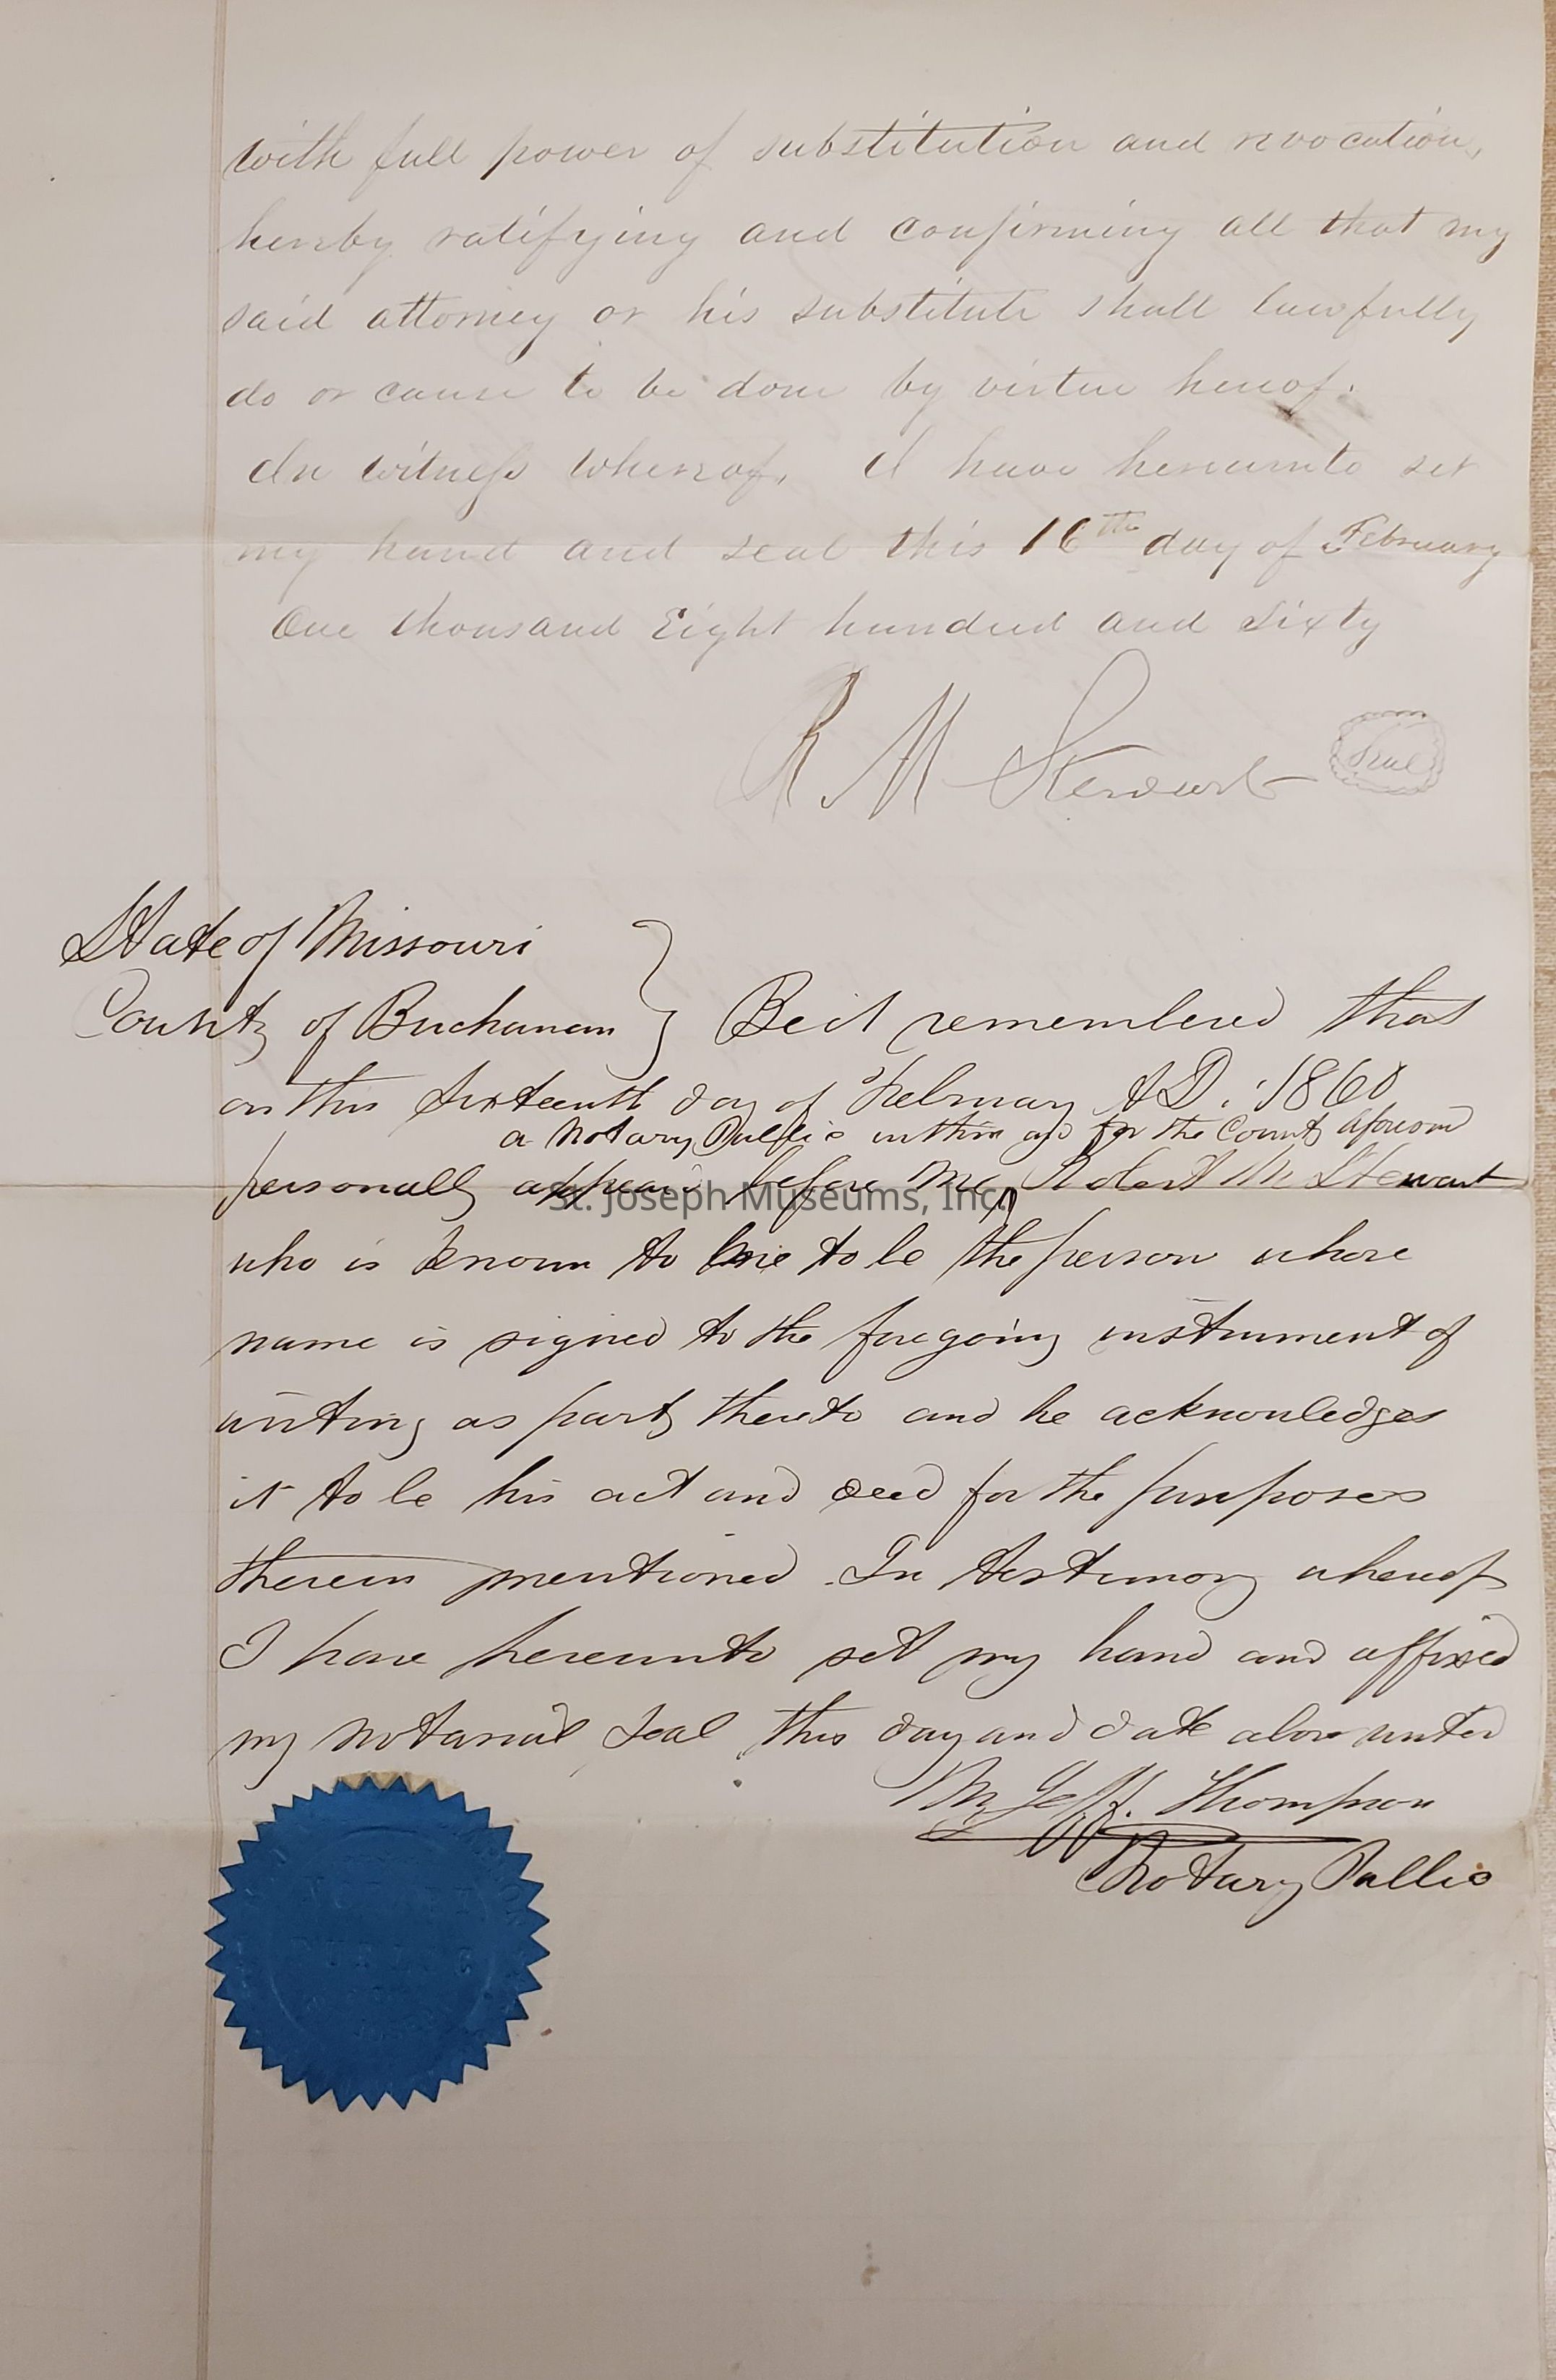 with full power of substitution and revocation,
hereby ratifying and confirming all that my
said attorney or his substitute shall lawfully
do or cause to be done by virtue hereof.
In witness whereof, I have hereunto set
my hand and seal this 16th day of February
One thousand Eight hundred and Sixty
R M Stewart Seal
State of Missouri
County of Buchanan } Be it remembered that
on this Sixteenth day of February A.D. 1860
a Notary Public within and for the County aforesaid
personally appears before me, Robert M Stewart
St. Joseph Museums, Inc.
who is known to me to be the person whose
name is signed to the foregoing instrument of
writing as party thereto and he acknowledges
it to be his act and deed for the purposes
therein mentioned. In testimony whereof
I have hereunto set my hand and affixed
my notarial seal this day and date above written
M. Jeff. Thompson
Notary Public